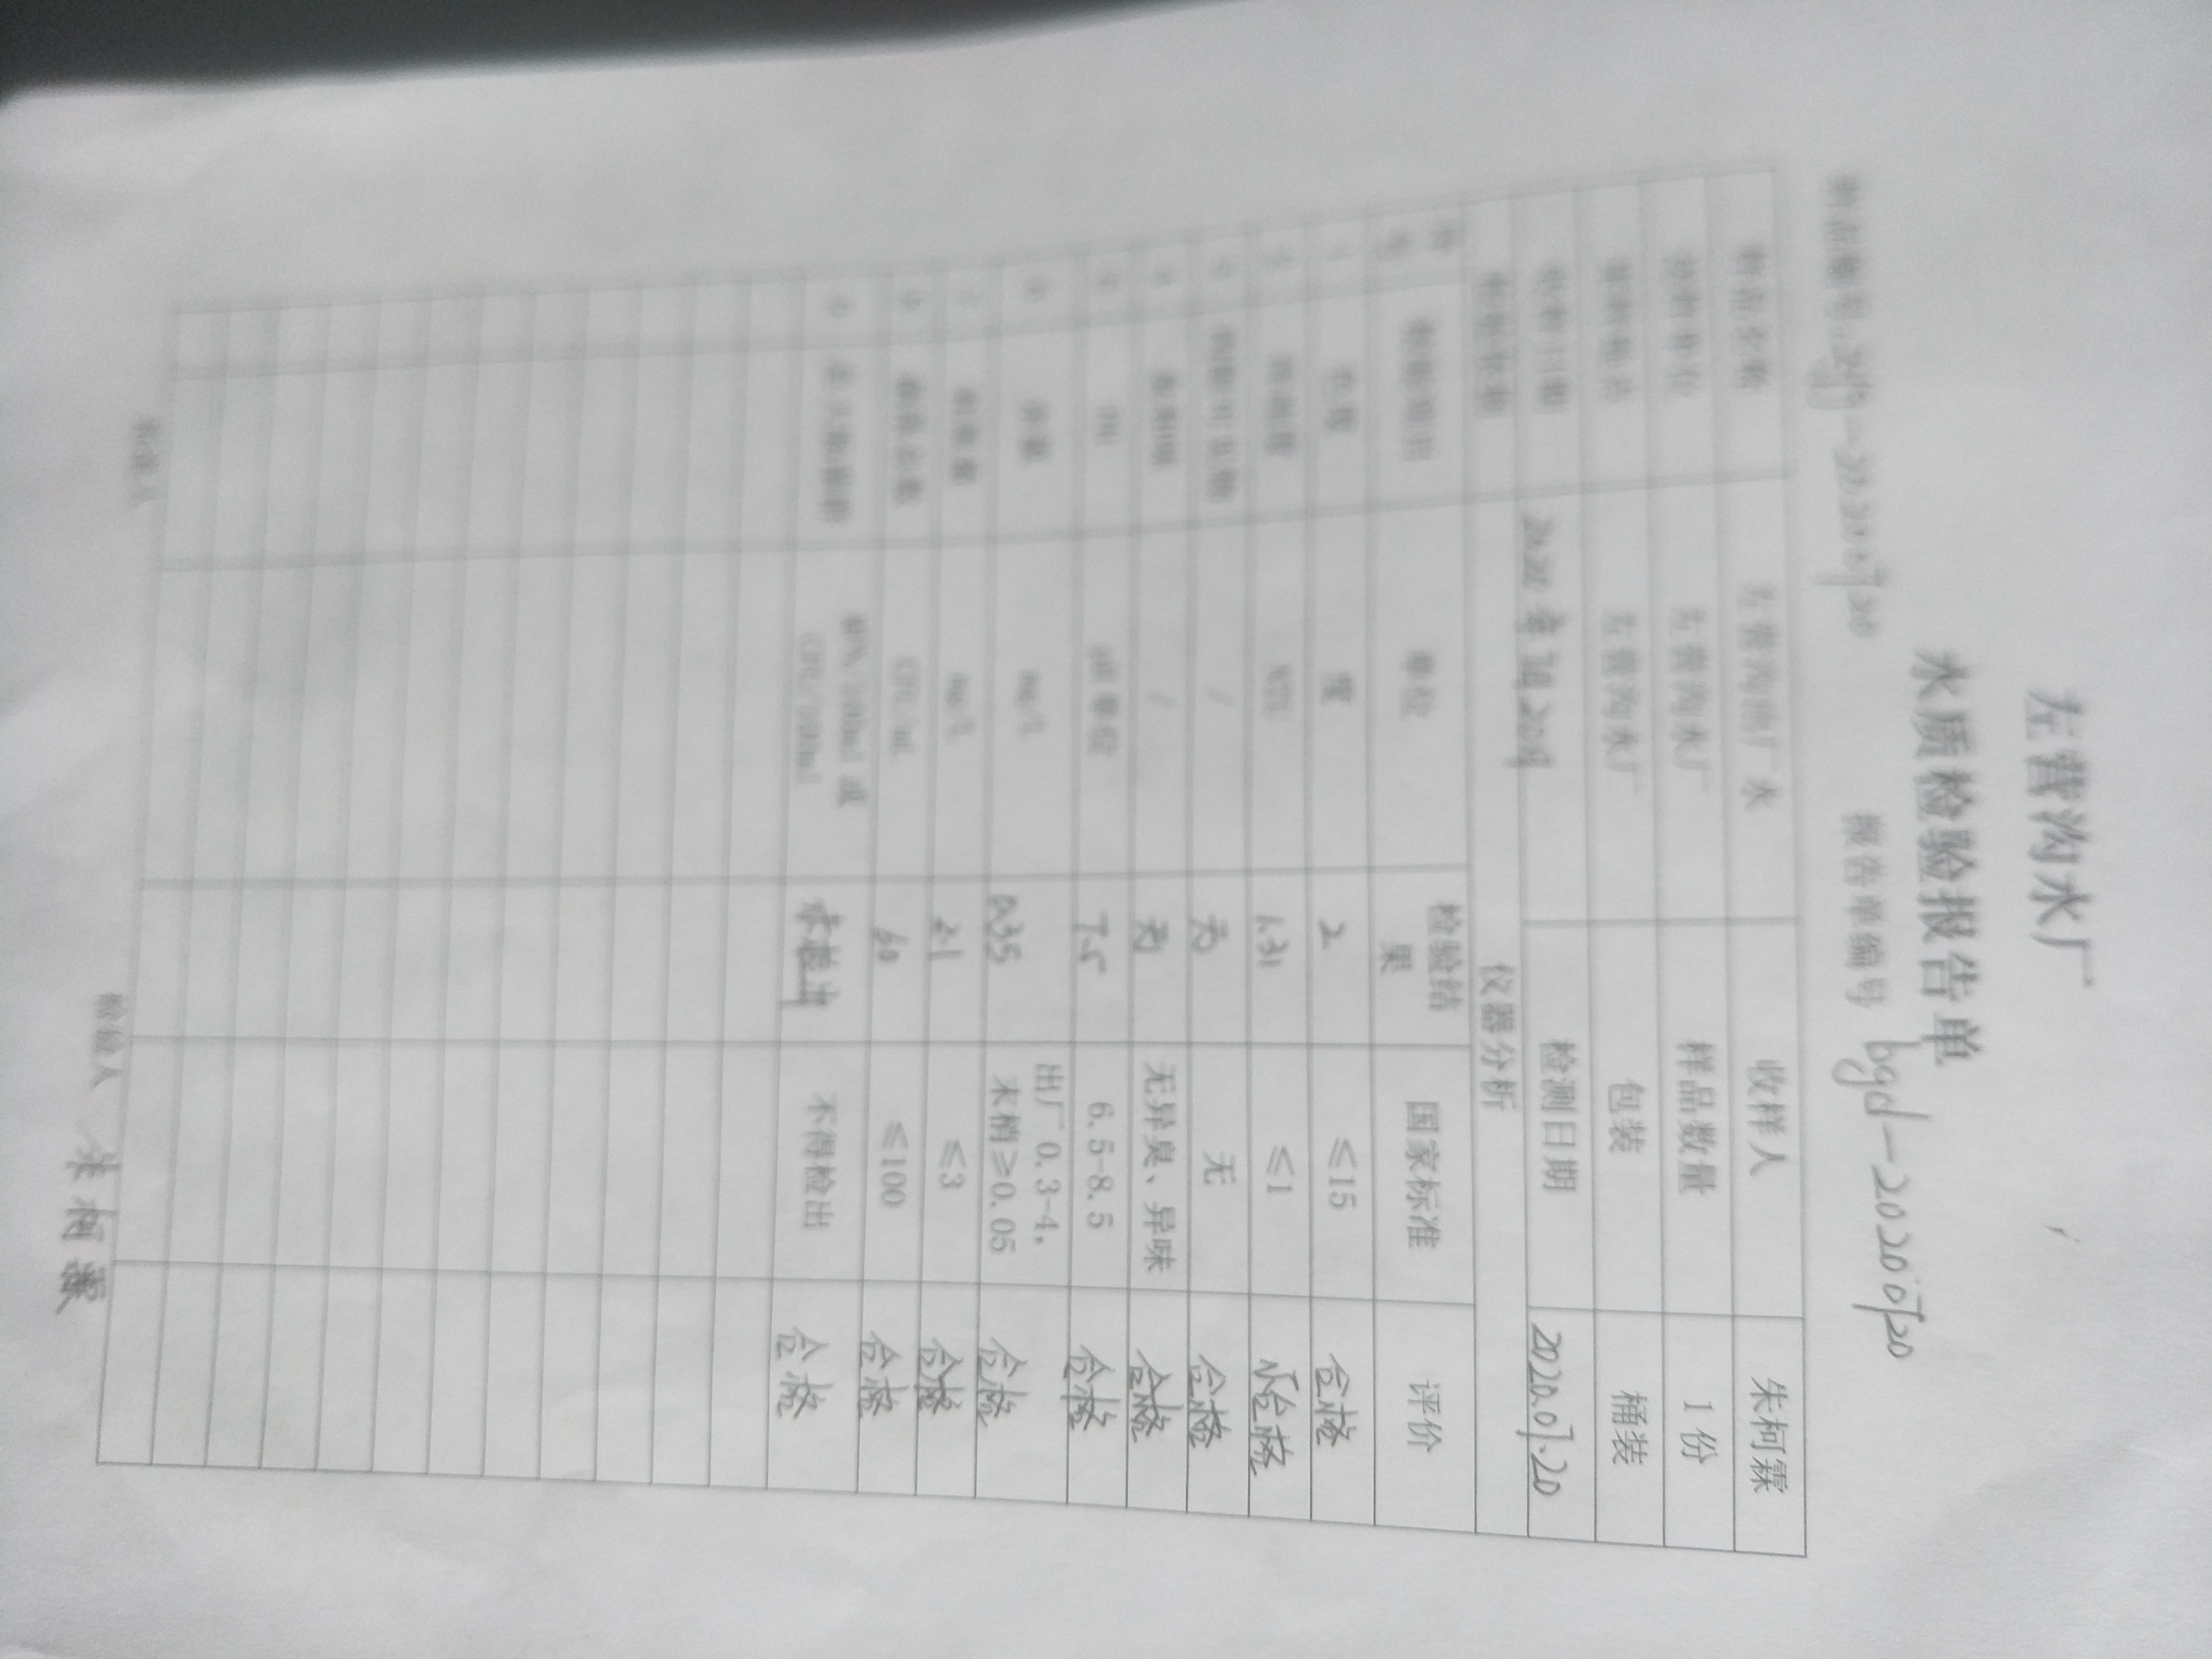 左营沟水厂
水质检验报告单
样品编号: 报告单编号 bgd-20200720
样品名称 左营沟出厂水 收样人 朱柯霖
送样单位 左营沟水厂 样品数量 1份
采样地点 左营沟水厂 包装 桶装
采样日期 2020年7月20日 检测日期 2020.07.20
检验依据 仪器分析
序号 检验项目 单位 检验结果 国家标准 评价
1 色度 度 2 ≤15 合格
2 浑浊度 NTU 1.31 ≤1 不合格
3 肉眼可见物 / 无 无 合格
4 臭和味 / 无 无异臭、异味 合格
5 PH pH单位 7.5 6.5-8.5 合格
6 余氯 mg/L 0.35 出厂0.3-4,
末梢≥0.05 合格
7 耗氧量 mg/L 2.1 ≤3 合格
8 菌落总数 CFU/mL 60 ≤100 合格
9 总大肠菌群 MPN/100ml 或
CFU/100ml 未检出 不得检出 合格
检验人 朱柯霖